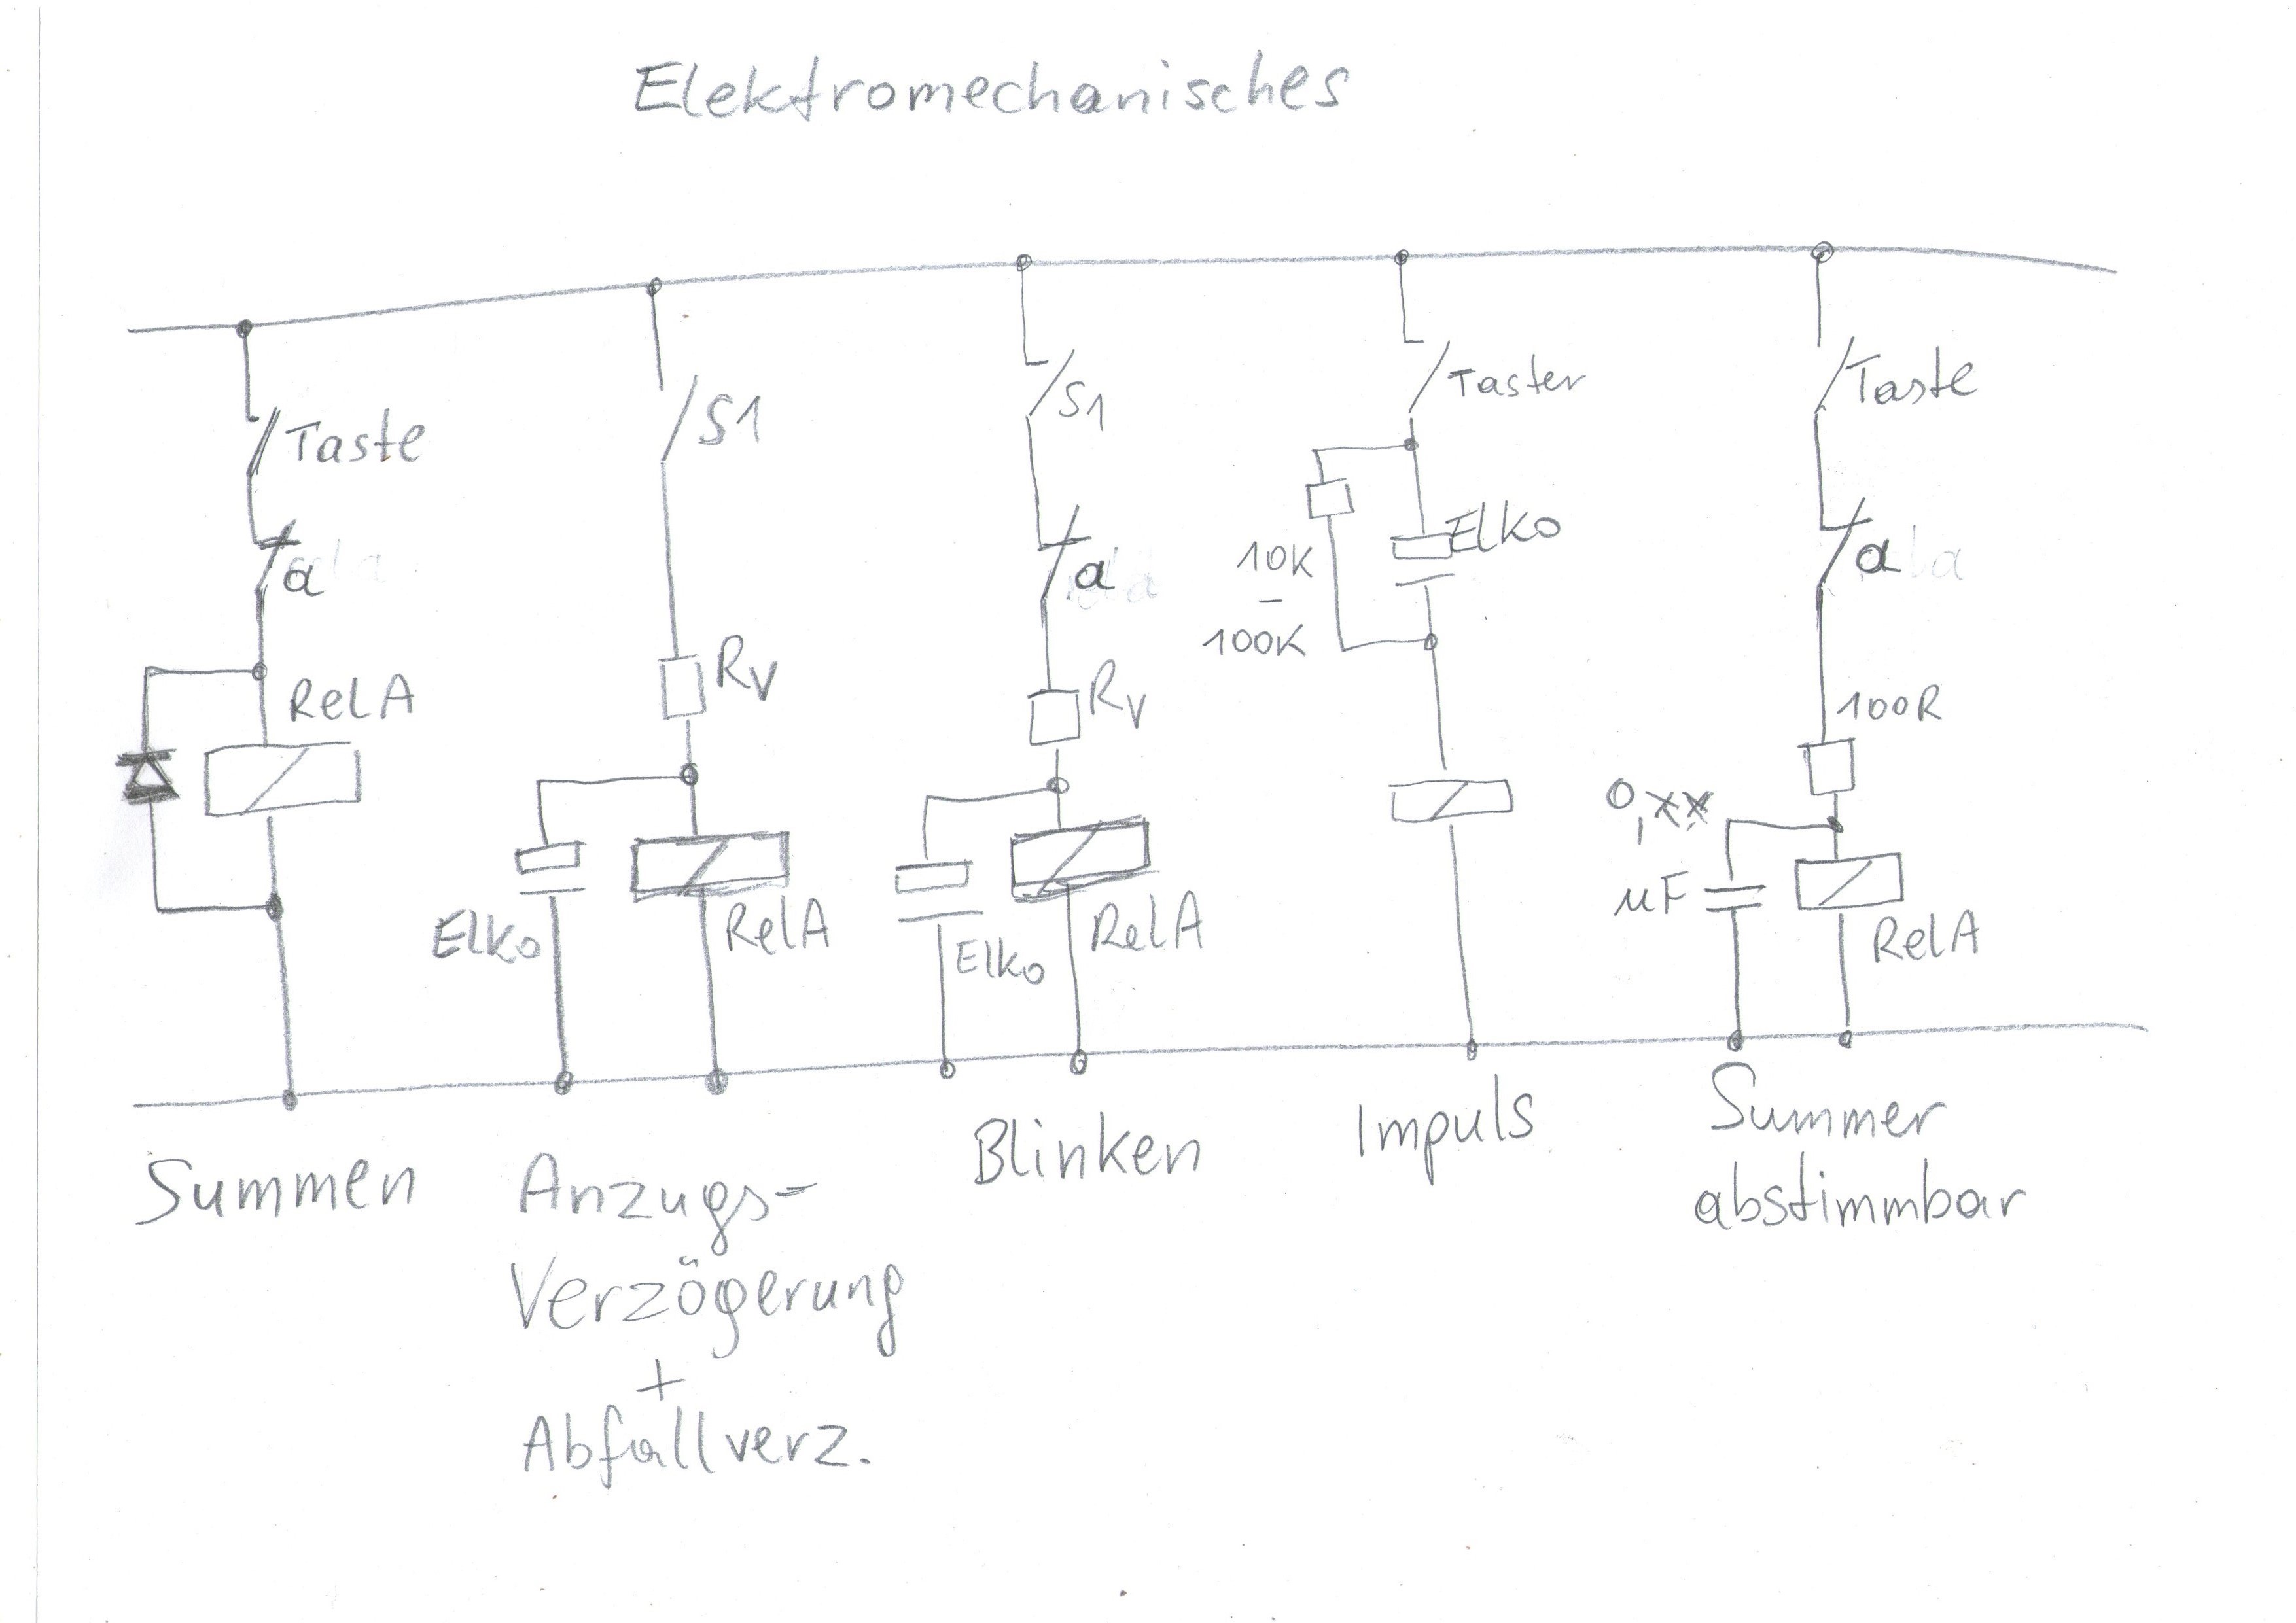 Elektromechanisches
Taste
a
RelA
Summen
S1
Rv
Elko
RelA
Anzugs-
Verzögerung
+
Abfallverz.
S1
a
Rv
Elko
RelA
Blinken
Taster
Elko
10K
–
100K
Impuls
Taste
a
100R
0,xx
µF
RelA
Summer
abstimmbar